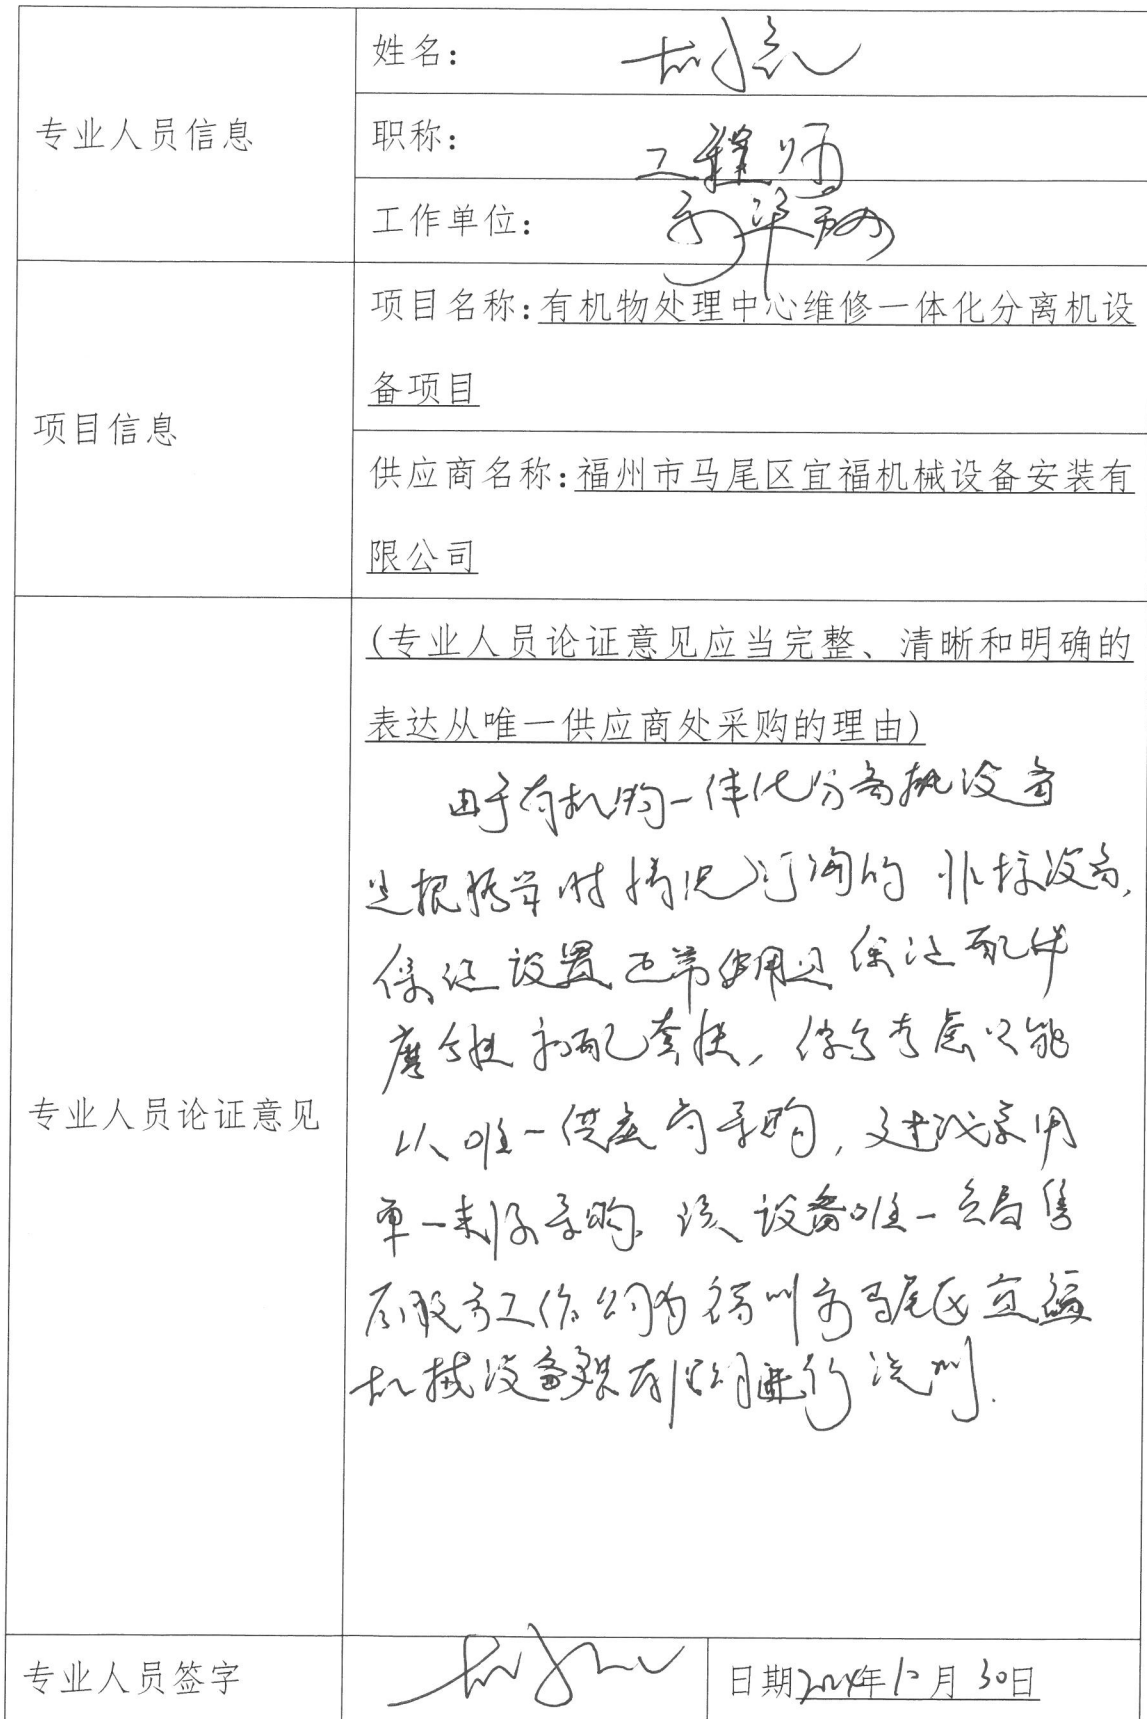 专业人员信息
姓名：
职称：工程师
工作单位：
项目信息
项目名称：有机物处理中心维修一体化分离机设
备项目
供应商名称：福州市马尾区宜福机械设备安装有
限公司
专业人员论证意见
(专业人员论证意见应当完整、清晰和明确的
表达从唯一供应商处采购的理由)
由于有机物一体化分离机设备
是根据当时情况订购的非标设备，
保证设置正常使用且保证配件
合性和配套性，综合考虑只能
从唯一供应商采购，建议采用
单一来源采购，该设备唯一售
后服务工作公司为福州市马尾区宜福
机械设备安装有限公司进行
专业人员签字
日期2024年12月30日